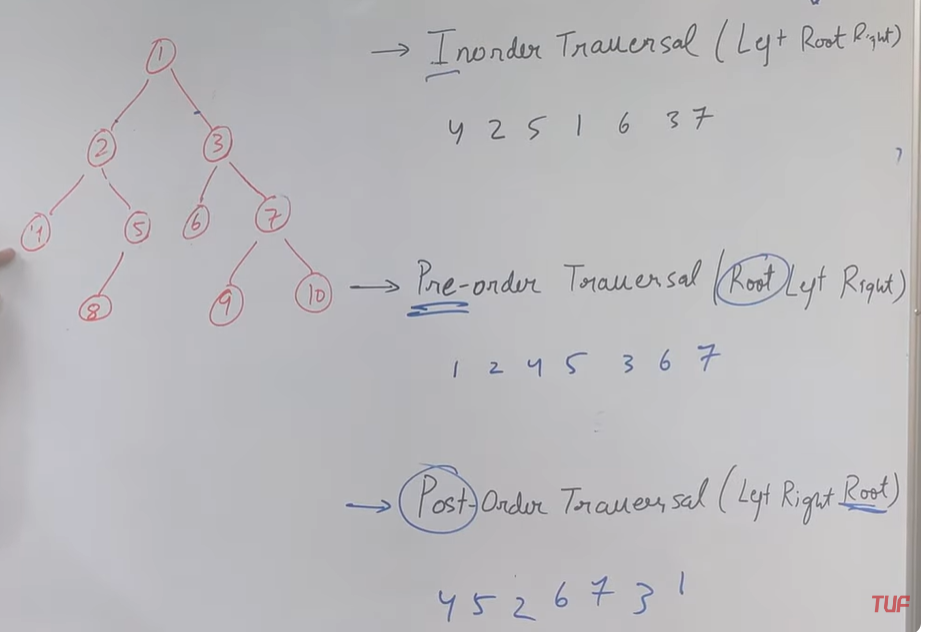 1
→ Inorder Traversal (Left Root Right)
4 2 5 1 6 3 7
2 3
4 5 6 7
8 9 10
→ Pre-order Traversal (Root Left Right)
1 2 4 5 3 6 7
→ Post-Order Traversal (Left Right Root)
4 5 2 6 7 3 1
TUF